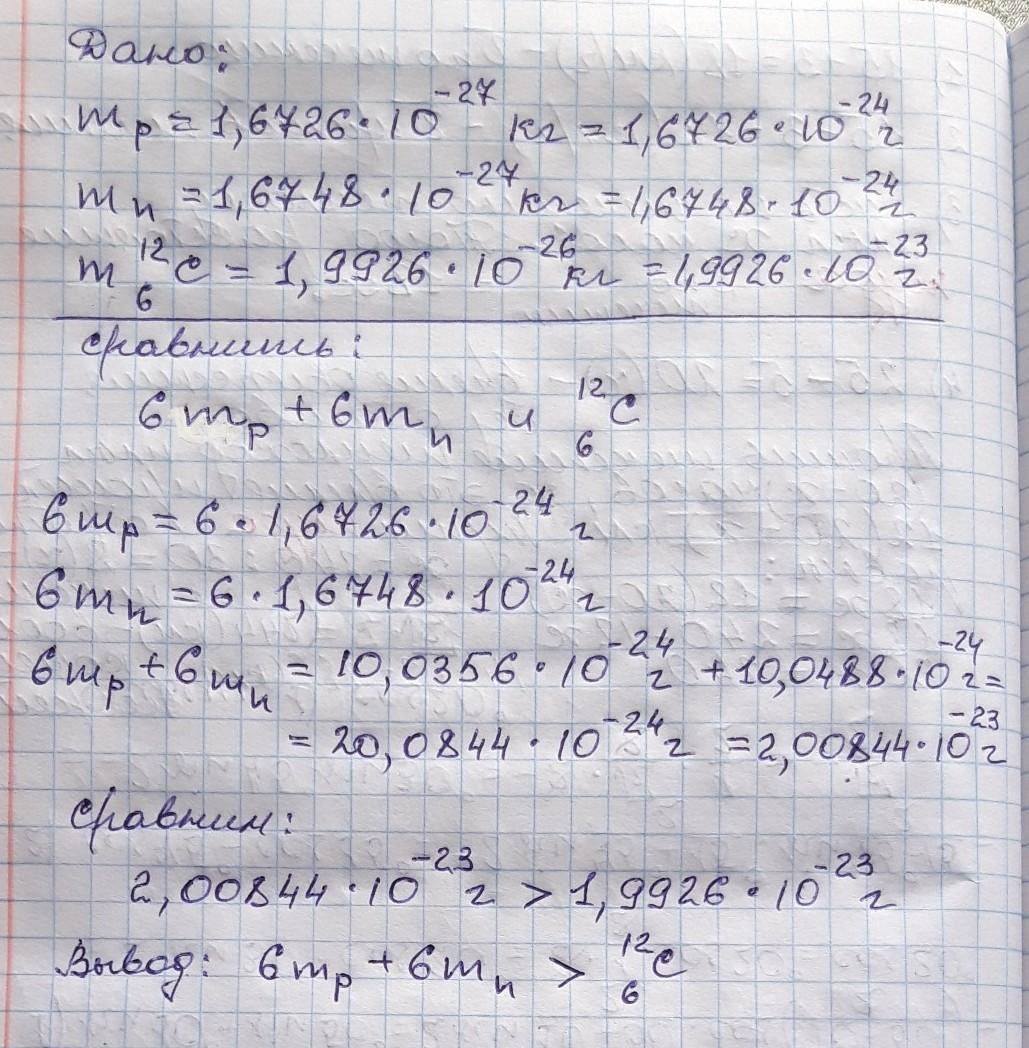 Дано:
m_p = 1,6726·10^-27 кг = 1,6726·10^-24 г
m_n = 1,6748·10^-27 кг = 1,6748·10^-24 г
m ^12_6 C = 1,9926·10^-26 кг = 1,9926·10^-23 г.
Сравнить:
6m_p + 6m_n и ^12_6 C
6m_p = 6·1,6726·10^-24 г
6m_n = 6·1,6748·10^-24 г
6m_p + 6m_n = 10,0356·10^-24 г + 10,0488·10^-24 г =
= 20,0844·10^-24 г = 2,00844·10^-23 г
Сравним:
2,00844·10^-23 г > 1,9926·10^-23 г
Вывод: 6m_p + 6m_n > ^12_6 C